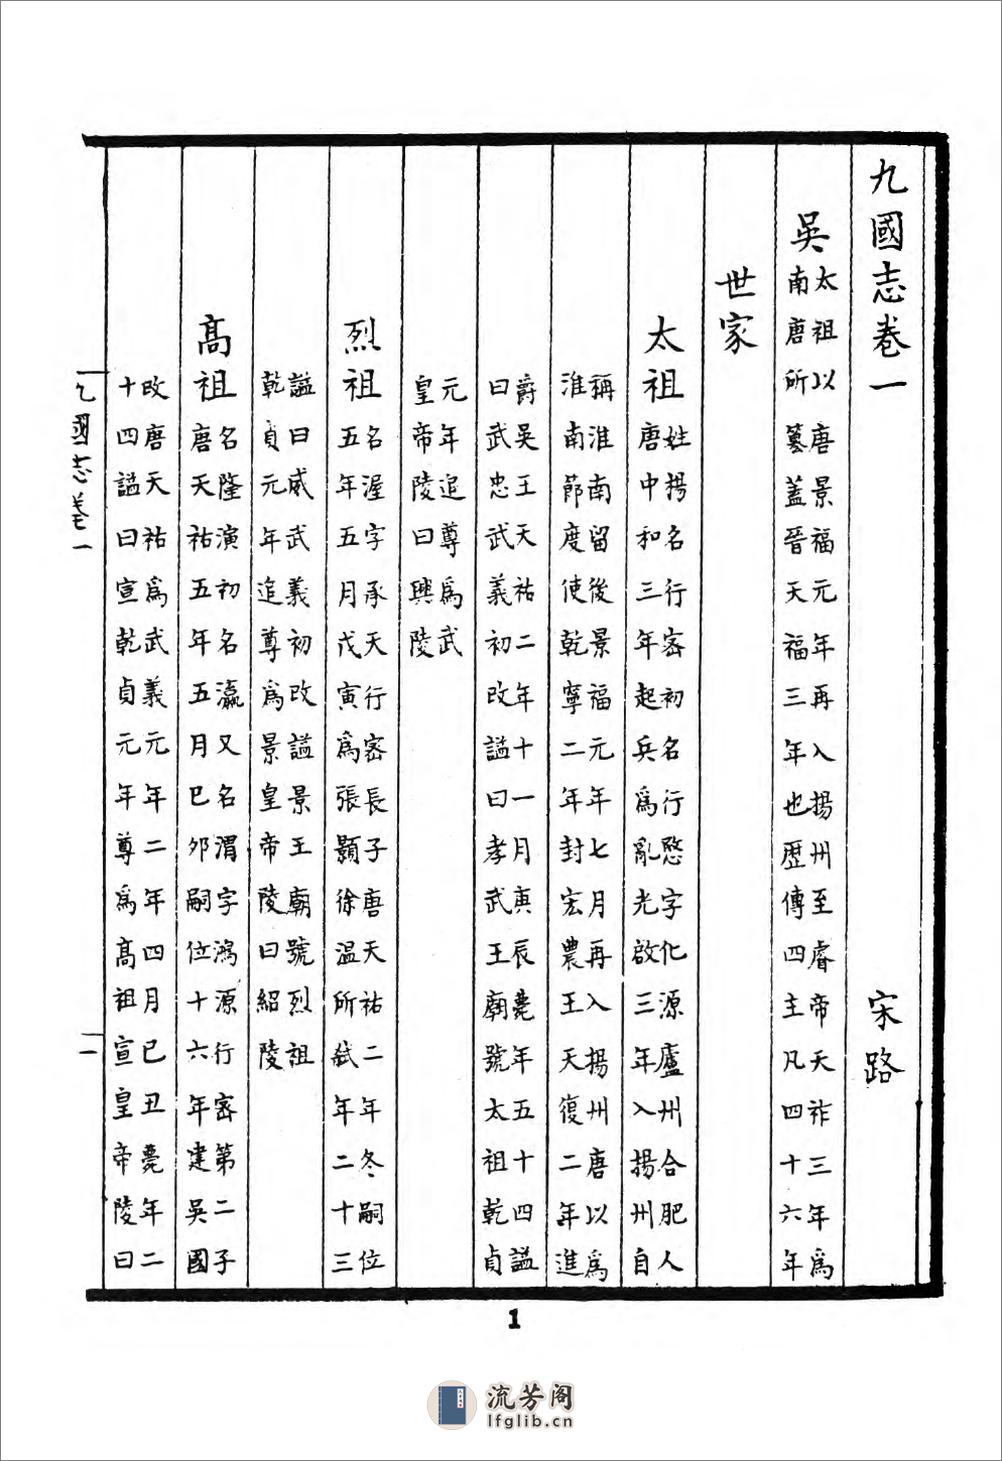 九國志卷一　宋路
吳
太祖以唐景福元年再入揚州至睿帝天祚三年爲
南唐所簒蓋晉天福三年也歷傳四主凡四十六年
世家
太祖
姓揚名行密初名行愍字化源廬州合肥人
唐中和三年起兵爲亂光啟三年入揚州自
稱淮南留後景福元年七月再入揚州唐以爲
淮南節度使乾寧二年封宏農王天復二年進
爵吳王天祐二年十一月庚辰薨年五十四謚
曰武忠武義初改謚曰孝武王廟號太祖乾貞
元年追尊爲武
皇帝陵曰興陵
烈祖
名渥字承天行密長子唐天祐二年冬嗣位
五年五月戊寅爲張顥徐溫所弒年二十三
謚曰威武義初改謚景王廟號烈祖
乾貞元年追尊爲景皇帝陵曰紹陵
高祖
名隆演初名瀛又名渭字鴻源行密第二子
唐天祐五年五月巳夘嗣位十六年建吳國
改唐天祐爲武義元年二年四月巳丑薨年二
十四謚曰宣乾貞元年尊爲高祖宣皇帝陵曰
九國志卷一
一
1
流芳阁
lfglib.cn